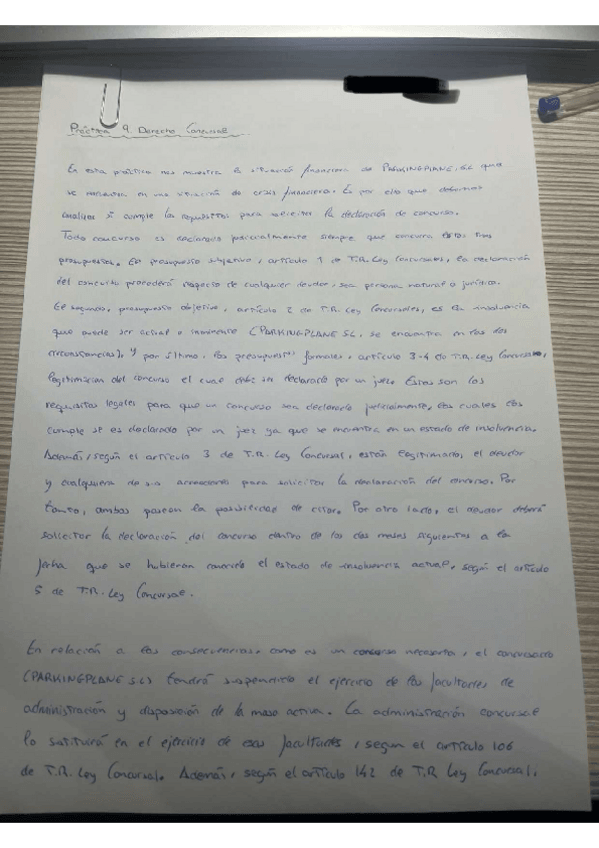 Práctica 9. Derecho Concursal
En esta práctica nos muestra la situación financiera de PARKINGPLANE, SL que
se encuentra en una situación de crisis financiera. Es por ello que debemos
analizar si cumple los requisitos para solicitar la declaración de concurso.
Todo concurso es declarado judicialmente siempre que concurra estos tres
presupuestos. El presupuesto subjetivo, artículo 1 de T.R. Ley Concursal, la declaración
del concurso procederá respecto de cualquier deudor, sea persona natural o jurídica.
El segundo, presupuesto objetivo, artículo 2 de T.R. Ley Concursal, es la insolvencia
que puede ser actual o inminente (PARKINGPLANE SL, se encuentra en las dos
circunstancias). Y por último, los presupuestos formales, artículo 3-4 de T.R. Ley Concursal,
legitimación del concurso el cual debe ser declarado por un juez. Estas son los
requisitos legales para que un concurso sea declarado judicialmente, los cuales los
cumple si es declarado por un juez ya que se encuentra en un estado de insolvencia.
Además, según el artículo 3 de T.R. Ley Concursal, están legitimado, el deudor
y cualquiera de sus acreedores para solicitar la declaración del concurso. Por
tanto, ambos poseen la posibilidad de Por otro lado, el deudor deberá
solicitar la declaración del concurso dentro de los dos meses siguientes a la
fecha que se hubieran conocido el estado de insolvencia actual, según el artículo
5 de T.R. Ley Concursal.
En relación a las consecuencias, como es un concurso necesario, el concursado
(PARKINGPLANE SL) tendrá suspendido el ejercicio de las facultades de
administración y disposición de la masa activa. La administración concursal
lo sustituirá en el ejercicio de esas facultades, según el artículo 106
de T.R. Ley Concursal. Además, según el artículo 142 de T.R Ley Concursal,